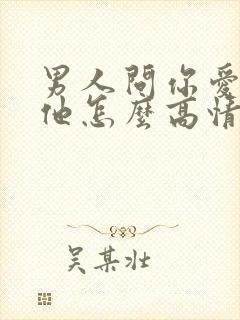 男人問你愛
他怎麼高情
吴某壮